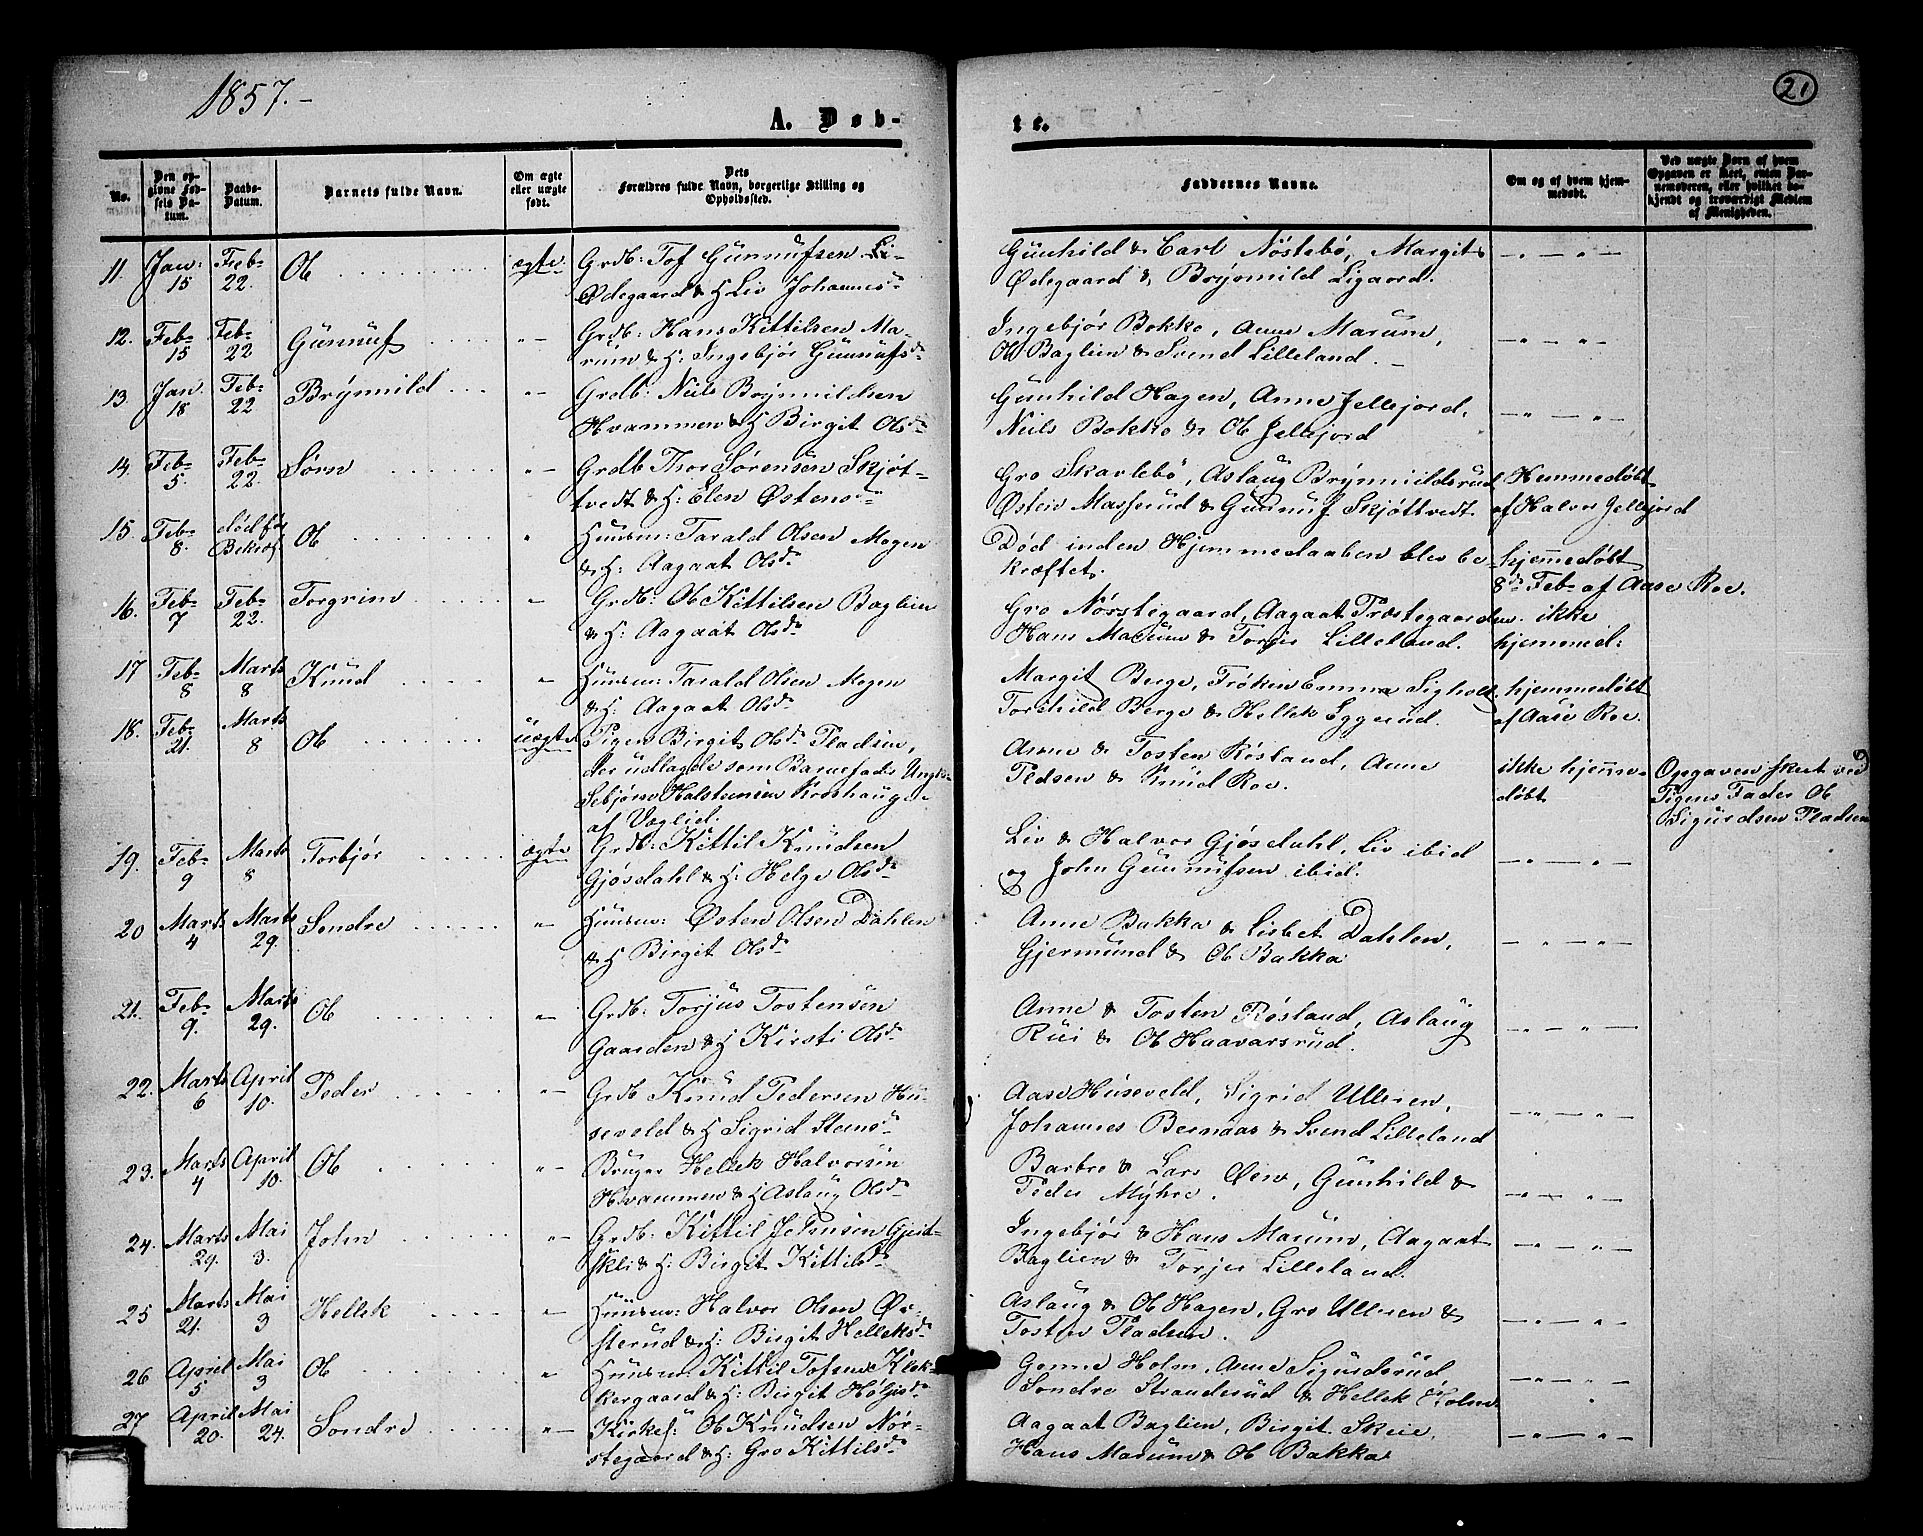 1857.-
21
A. Døb-
te.
No.
Den op-
givne Fød-
sels Da-
tum.
Daabs-
Datum.
Barnets fulde Navn.
Om ægte
eller uægte
født.
Dets
Forældres fulde Navn, borgerlige Stilling og
Opholdssted.
Faddernes Navne.
Om og af hvem hjem-
medøbt.
Ved uægte Børn af hvem
Opgaven er skeet, enten Bar-
nemoderen, eller hvilket be-
kjendt og troværdigt Medlem
af Menigheden.
11. Jan: 15 Feb- 22. Ol ægte Grdb: Tof Gunnufsen Li-
Ødegaard & H Liv Johannesdr
Gunhild & Carl Nøstebø, Margit
Ødegaard & Brynmild Ligaard.
12. Feb- 15 Feb- 22 Gunnuf Grdb: Hans Kittilsen Ma-
rum & H: Ingebjør Gunnufsdr
Ingebjør Bokko, Anne Marum,
Ol Baglien & Svend Lilleland.
13. Jan. 18 Feb- 22 Brynmild Grdb: Niels Brynmildsen
Hvammen & H Birgit Olsdr
Gunhild Hagen, Anne Jellejord,
Niels Bokko & Ol Jellejord
14. Feb- 5. Feb- 22. Sørn Grdb Thor Sørensen Skjøt-
tvedt & H: Elen Østensdr
Gro Skavlebø, Aslaug Brynmildsrud
Østen Massrud & Gunnuf Skjøttvedt.
Hemmedøbt
af Halvor Jellejord
15. Feb- 8. død før
Bekræf. Ol Huusm: Tarald Olsen Mogen
& H: Aagaat Olsdr
Død inden Hjemmedaaben blev be-
kræftet.
hjemmedøbt
8de Feb- af Aase Roe.
16. Feb- 7 Feb- 22. Torgrim Grdb: Ol Kittilsen Baglien
& H: Aagaat Olsdr
Gro Nørstegaard, Aagaat Træstegaarden.
Hans Marum & Torjus Lilleland.
ikke
hjemmed:
17 Feb- 8 Marts 8 Knud Huusm: Tarald Olsen Mogen
& H: Aagaat Olsdr
Margit Berge, Frøken Emma Sigholt,
Torchild Berge & Hellek Eggerud.
hjemmedøbt
af Aase Roe.
18. Feb- 21. Marts 8 Ol uægte Pigen Birgit Olsdr Pladsen,
der udlagde som Barnefader Ungk:
Sebjørn Halsteinsen Kroshaug
af Vegli:
Anne & Tosten Røsland, Anne
Pladsen & Knud Roe.
ikke hjemme-
døbt
Opgaven skeet ved
Pigens Fader Ol
Sigurdsen Pladsen
19. Feb- 9 Marts 8 Torbjør ægte Grdb: Kittil Knudsen
Gjøsdahl & H: Helge Olsdr
Liv & Halvor Gjøsdahl, Liv ibid
og John Gunnufsen ibid.
20 Marts 4 Marts 29. Sondre Huusm: Østen Olsen Dahlen
& H Birgit Olsdr
Anne Bakka & Lisbet Dahlen,
Gjermund & Ol Bakka
21. Feb- 9. Marts 29. Ol Grdb: Torjus Tostensen
Gaarden & H Kirsti Olsdr
Anne & Tosten Røsland, Aslaug
Rui & Ol Haavarsrud.
22. Marts 6 April 10. Peder Grdb Knud Pedersen Hu-
seveld & H Sigrid Steensdr
Aase Huseveld, Sigrid Ulleren,
Johannes Bernaas & Svend Lilleland
23. Marts 4 April 10. Ol Bruger Hellek Halvorsen
Hvammen & H Aslaug Olsdr
Barbro & Lars Øen, Gunhild &
Peder Myhre.
24. Marts 29. Mai 3. John Grdb: Kittil Johnsen Gjeit-
skli & H: Birgit Kittilsdr
Ingebjør & Hans Marum, Aagaat
Baglien & Torjus Lilleland.
25 Marts 21. Mai 3 Hellek Huusm: Halvor Olsen Øv-
sterud & H: Birgit Helleksdr
Aslaug & Ol Hagen, Gro Ulleren &
Tosten Pladsen.
26 April 5 Mai 3 Ol Huusm: Kittil Tofsen Klek-
kergaard & H: Birgit Holgjsdr
Gonne Holm, Anne Sigurdsrud
Sondre Strandsrud & Hellek Holm
27 April 20. Mai 24. Sondre Kirkes: Ol Knudsen Nør-
stegaard & H: Gro Kittilsdr
Aagaat Baglien, Birgit Skeie,
Hans Marum & Ol Bakka